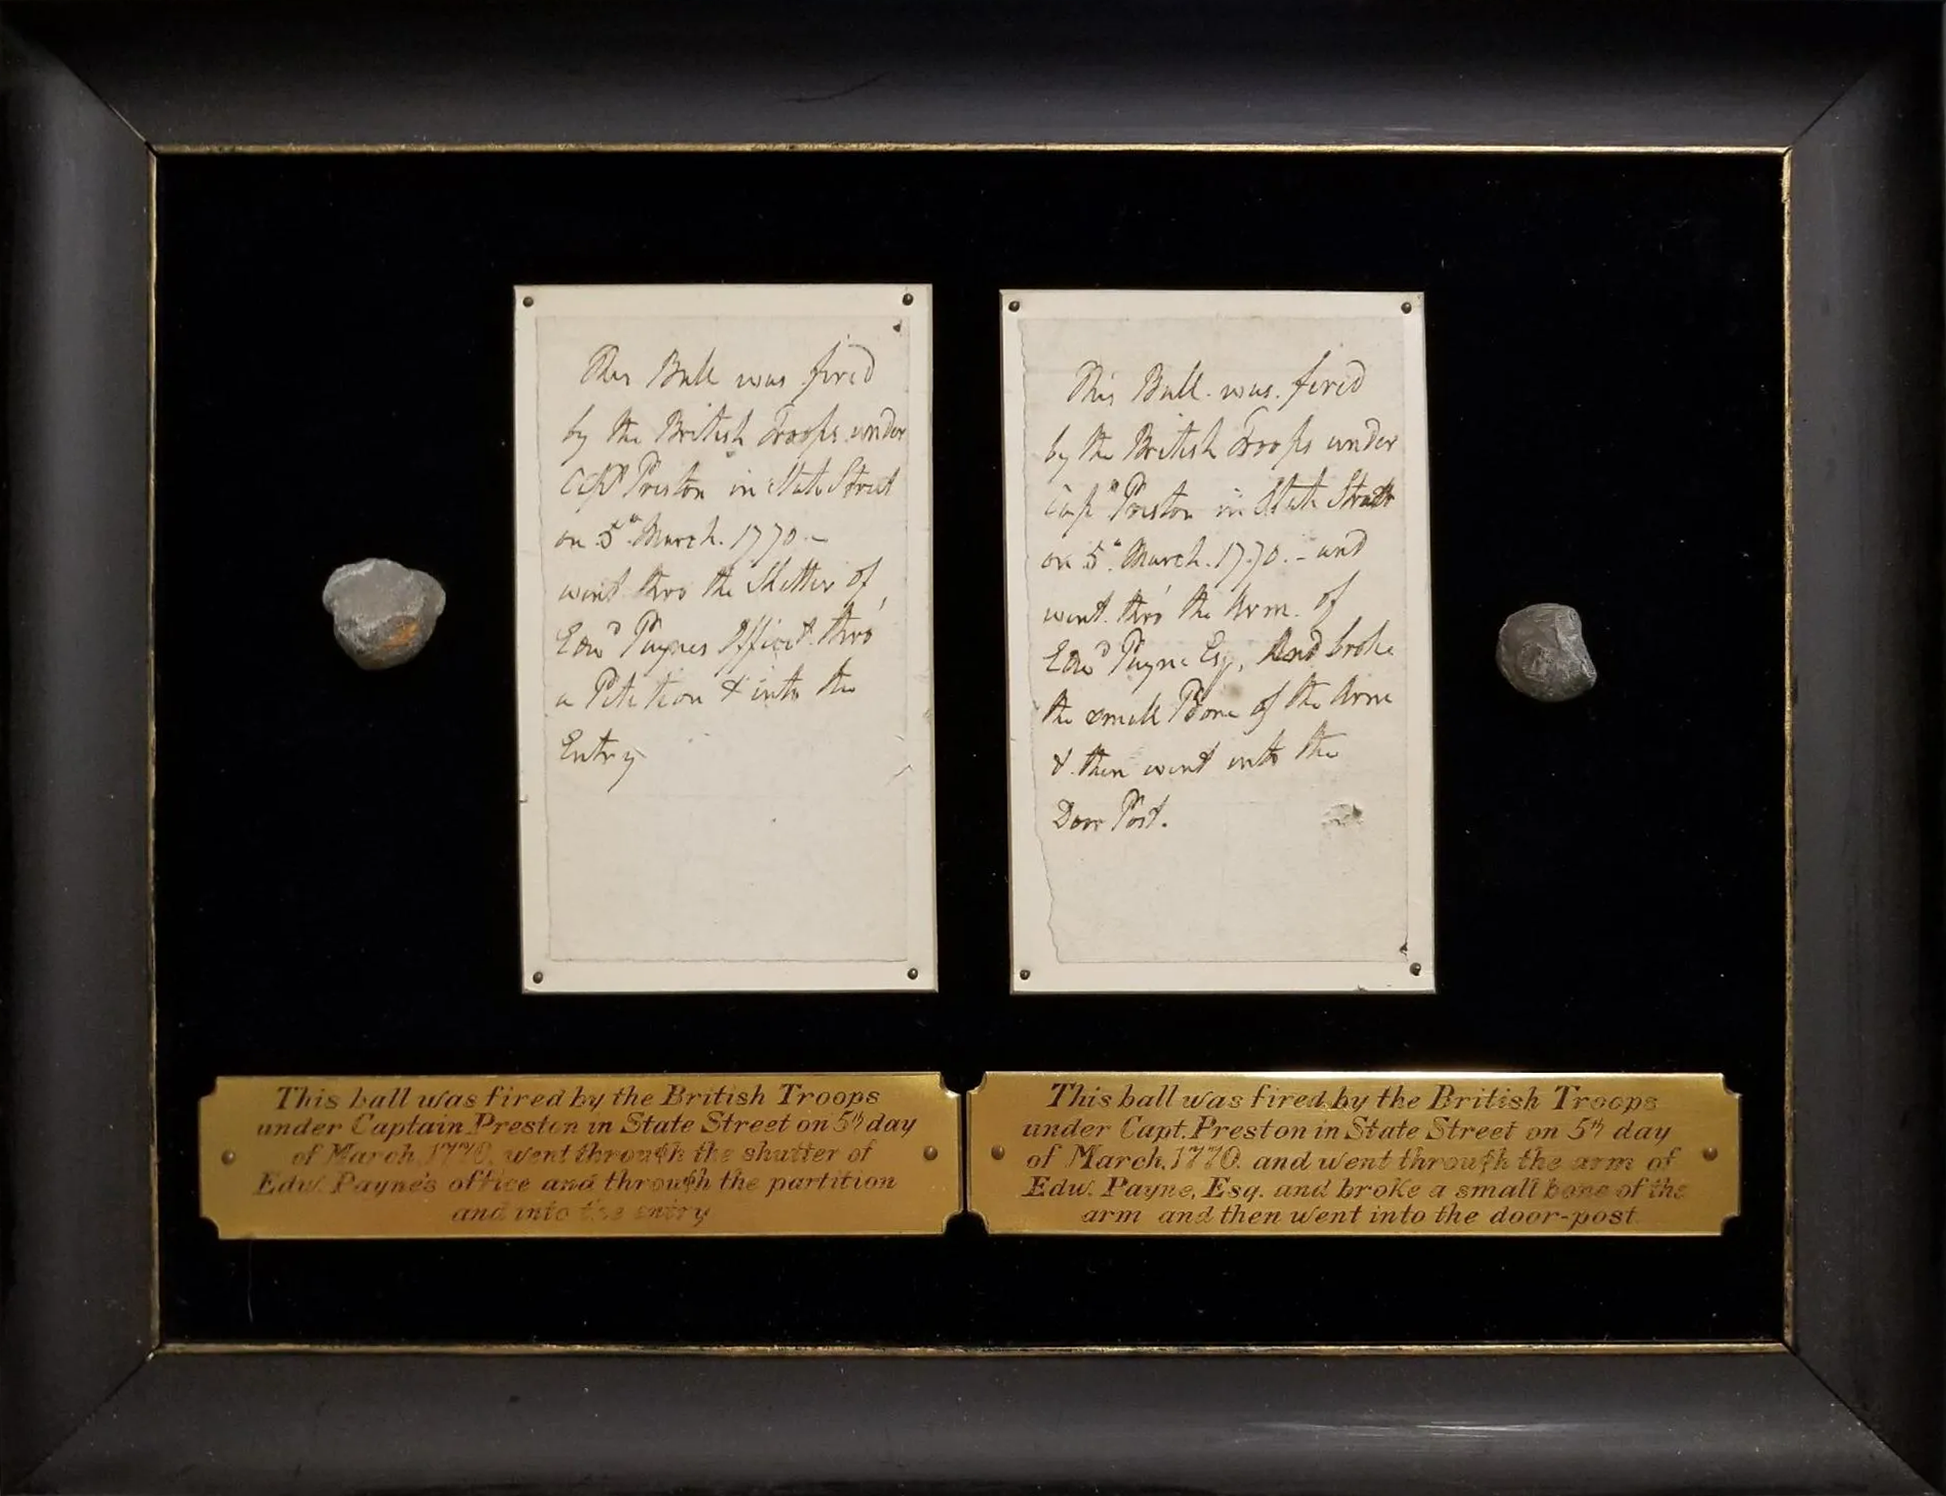 This Ball was fired
by the British Troops under
Capt Preston in State Street
on 5th March. 1770.-
went thro the Shutter of
Edwd Paynes Office & thro'
a Petition & into the
Entry
This Ball was fired
by the British Troops under
Capt Preston in State Street
on 5th March. 1770.- and
went thro' the Arm of
Edwd Payne Esq, And broke
the small Bone of the Arm
& then went into the
Door Post.
This ball was fired by the British Troops
under Captain Preston in State Street on 5th day
of March, 1770, went through the shutter of
Edw. Payne's office and through the partition
and into the entry
This ball was fired by the British Troops
under Capt. Preston in State Street on 5th day
of March, 1770, and went through the arm of
Edw. Payne, Esq. and broke a small bone of the
arm and then went into the door-post.